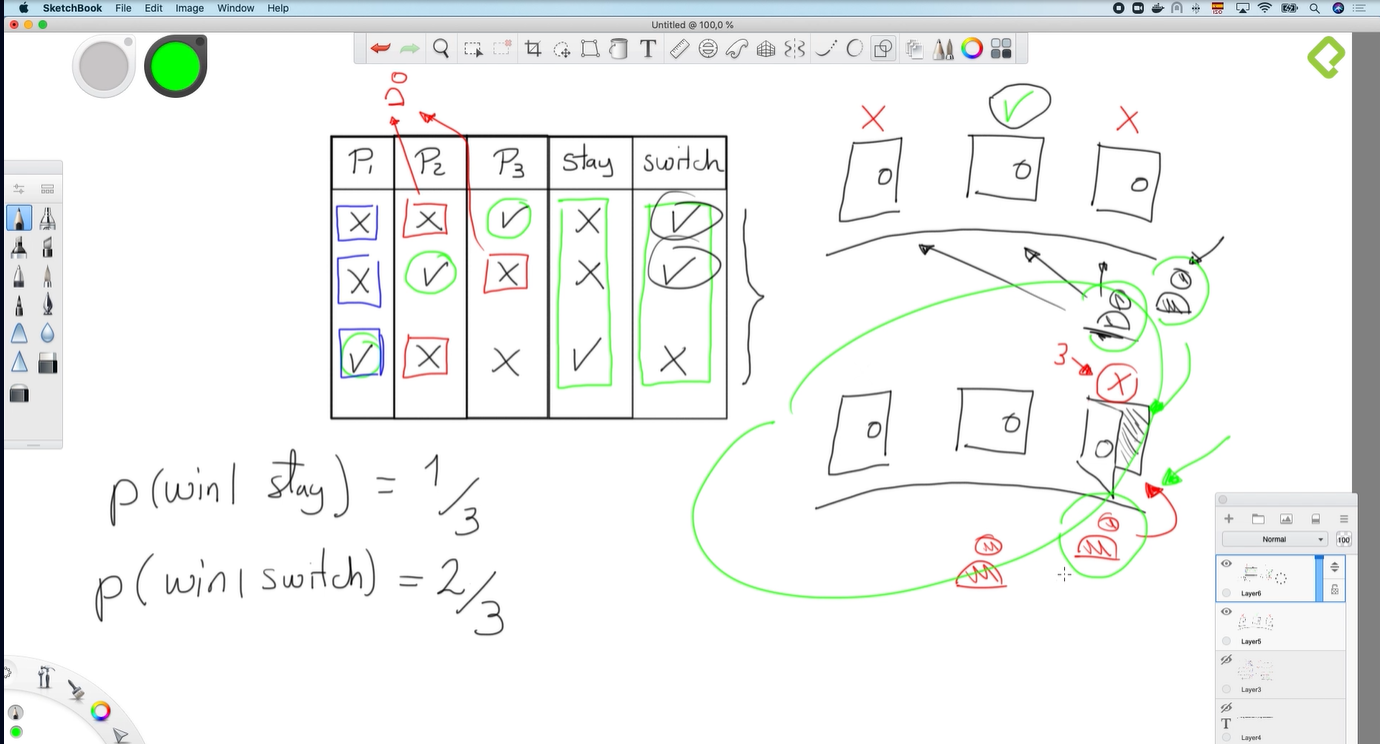 SketchBook File Edit Image Window Help
Untitled @ 100,0 %
P1 P2 P3 stay switch
X X ✓ X ✓
X ✓ X X ✓
✓ X X ✓ X
X ✓ X
3
X
p(win| stay) = 1/3
p(win| switch) = 2/3
Normal
100
Layer6
Layer5
Layer3
Layer4